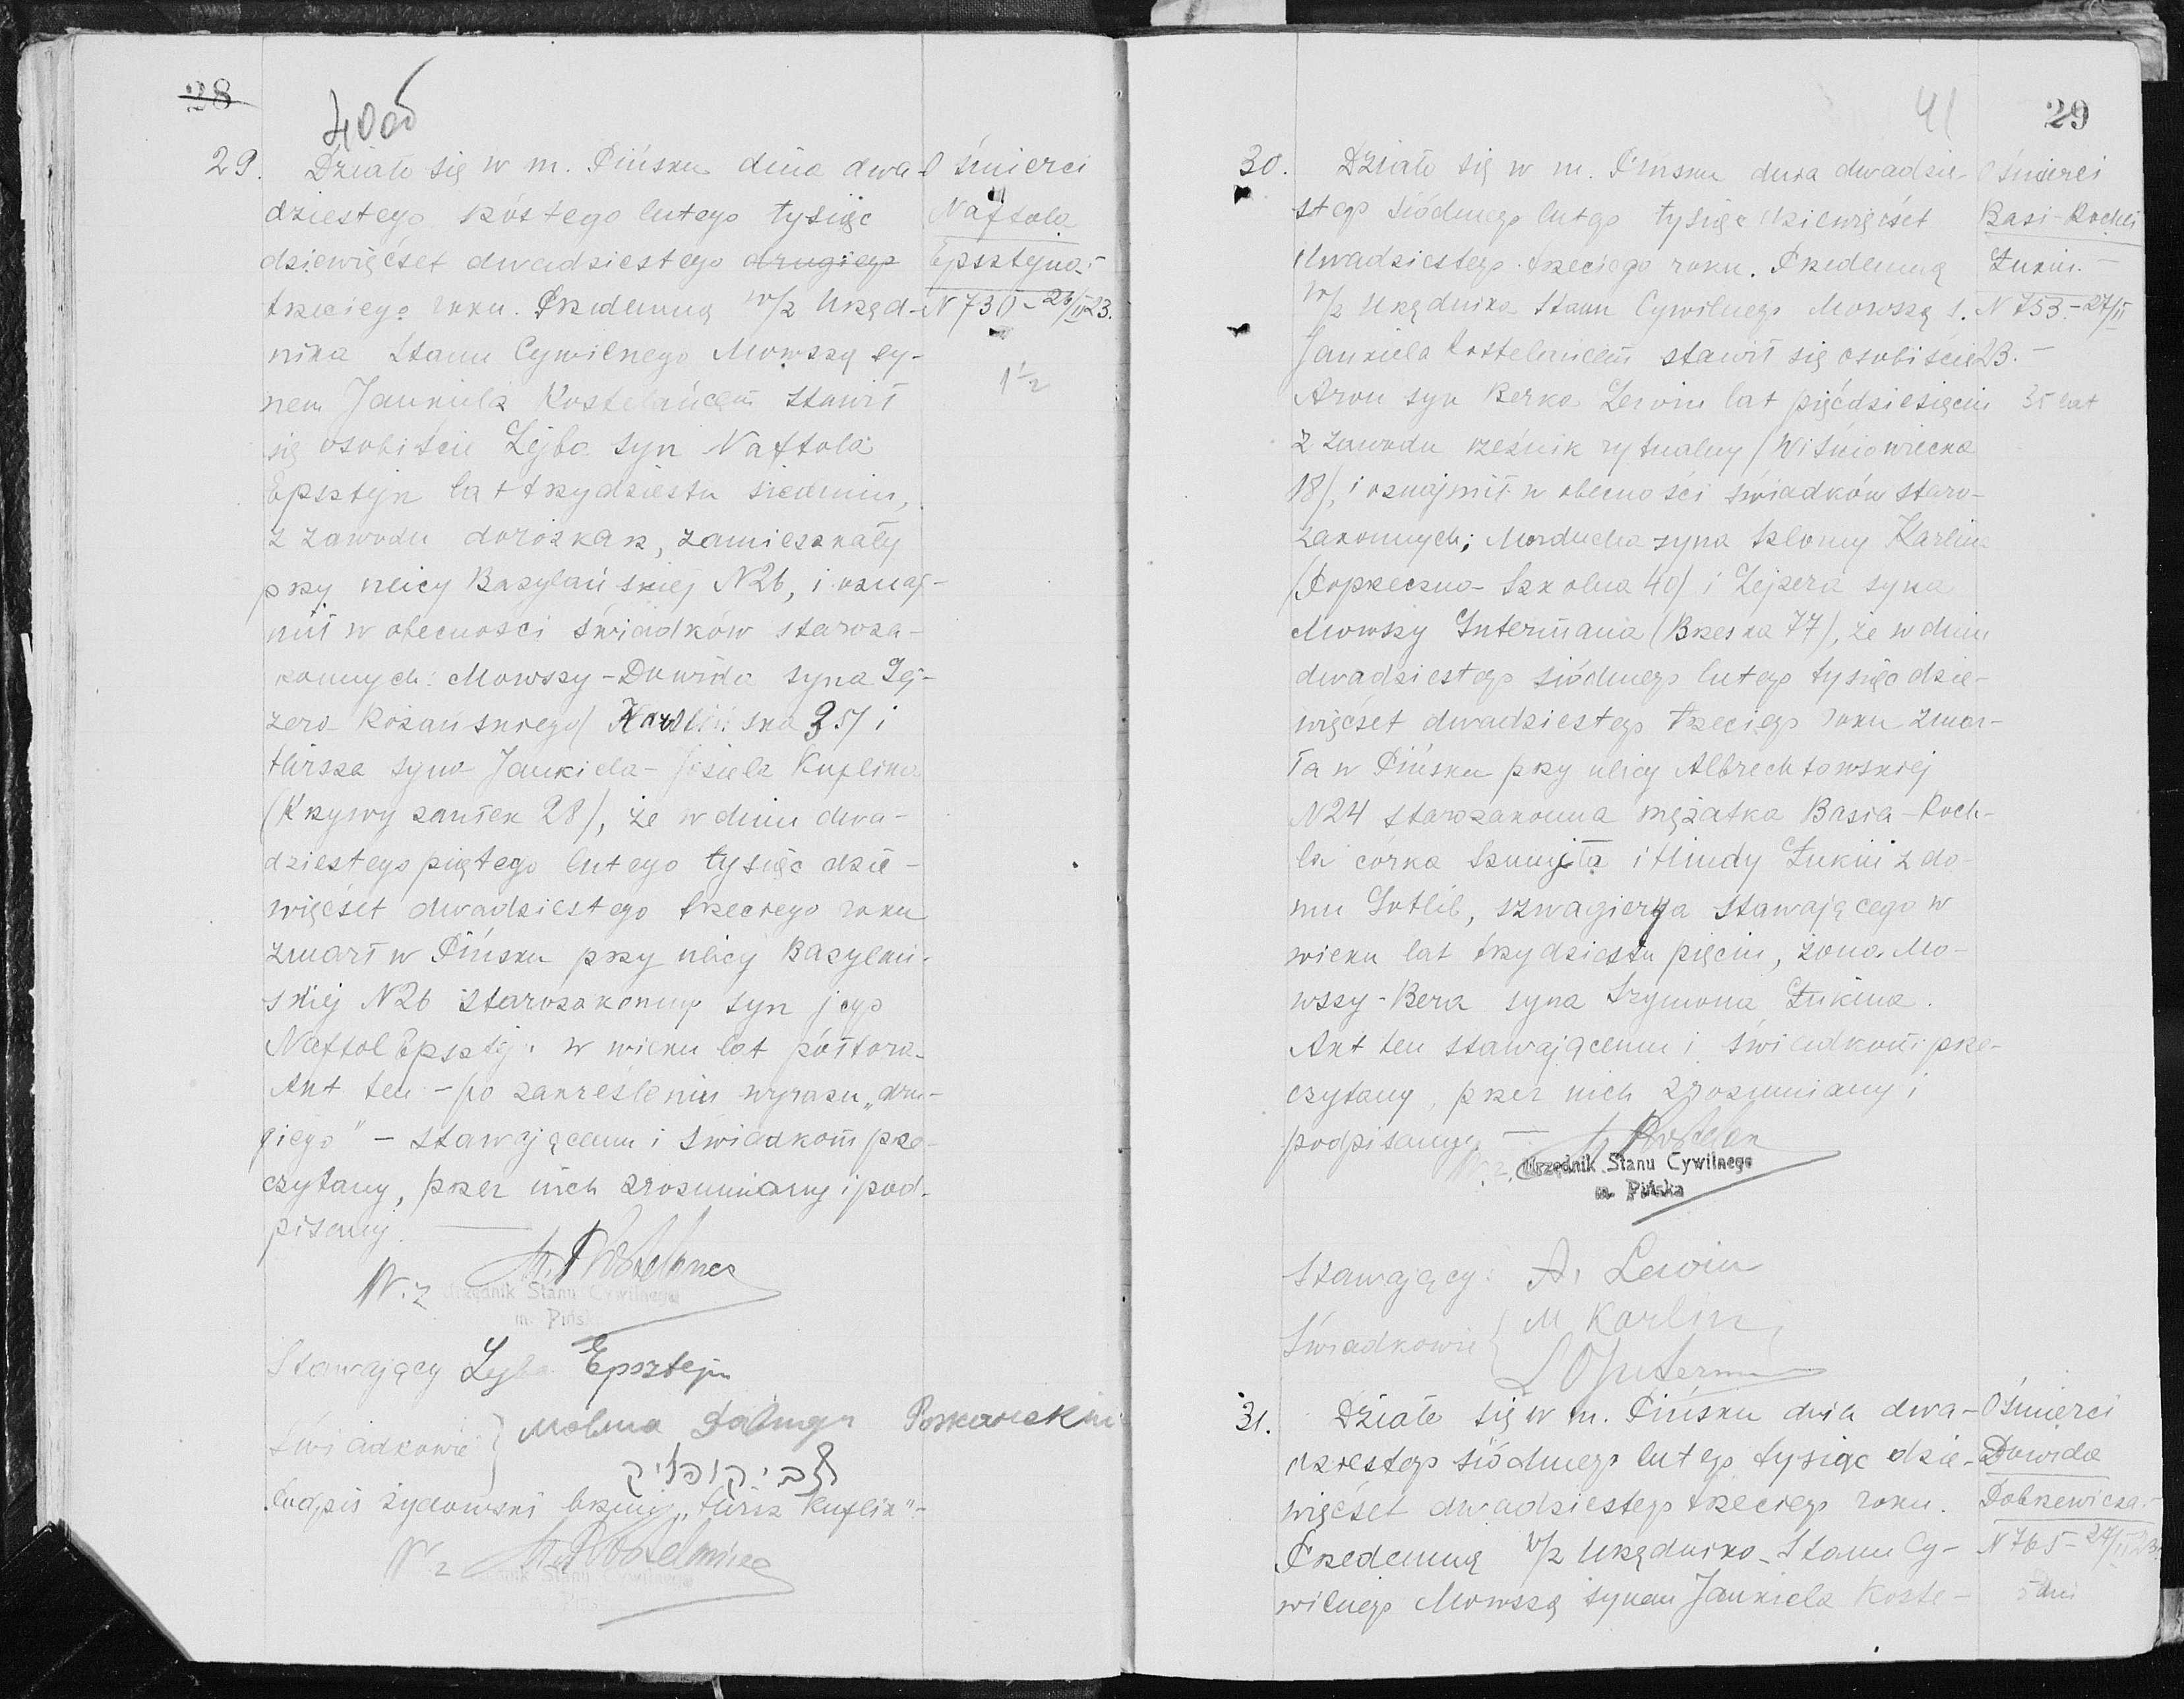 28
40об
29. Działo się w m. Pińsku dnia dwa-
dziestego szóstego lutego tysiąc
dziewięćset dwadziestego drugiego
trzeciego roku. Przedemną w/z Urzęd-
nika Stanu Cywilnego Mowszą sy-
nem Jankiela Kostelańcem stawił
się osobiście Lejba syn Naftola
Epsztejn lat trzydziestu siedmiu,
z zawodu dorożkarz, zamieszkały
przy ulicy Bazyljańskiej N26, i oznaj-
mił w obecności świadków staroza-
konnych: Mowszy-Dawida syna Lej-
zera Rożańskiego/ Karlińska 35/ i
Hirsza syna Jankiela-Josiela Kuflika
(Krzywy zaułek 28/, że w dniu dwa-
dziestego piątego lutego tysiąc dzie-
więćset dwadziestego trzeciego roku
zmarł w Pińsku przy ulicy Bazyljań-
skiej N26 starozakonny syn jego
Naftol Epsztejn w wieku lat półtora.
Akt ten - po zakreśleniu wyrazu „dru-
giego" - stawającemu i świadkom prze-
czytany, przez nich zrozumiany i pod-
pisany.
W. z
Urzędnik Stanu Cywilnego
m. Pińs
Stawający Lejba Epsztejn
Świadkowie
Podpis żydowski brzmi „Hirsz Kuflik"-
W z
Stanu Cywilnego
O śmierci
Naftola
Epsztejna.-
N 730 - 26/II 23.
1 1/2
41
29
30. Działo się w m. Pińsku dnia dwadzie-
stego siódmego lutego tysiąc dziewięćset
dwadziestego trzeciego roku. Przedemną
w/z Urzędnika Stanu Cywilnego Mowszą s.
Jankiela Kostelańcem stawił się osobiście
Aron syn Berka Lewin lat pięćdziesięciu
z zawodu rzeźnik rytualny /Wiśniowiecka
18/, i oznajmił w obecności świadków staro-
zakonnych: Morducha syna Szlomy Karlina
(Poprzeczno-Szkolna 40/ i Lejzera syna
Mowszy Gutermana (Brzeska 77), że w dniu
dwadziestego siódmego lutego tysiąc dzie-
więćset dwadziestego trzeciego roku zmar-
ła w Pińsku przy ulicy Albrechtowskiej
N24 starozakonna mężatka Basia-Roch-
la córka Szmujła i Hindy Żukin z do-
mu Gotlib, szwagierka stawającego w
wieku lat trzydziestu pięciu, żona Mo-
wszy-Bera syna Szymona Żukina.
Akt ten stawającemu i świadkom prze-
czytany, przez nich zrozumiany i
podpisany. -
W. z. Urzędnik Stanu Cywilnego
m. Pińska
Stawający: A. Lewin
Świadkowie { M Karlin
O śmierci
Basi-Rochli
Żukin.-
N 753.-27/II
23.-
35 lat
31. Działo się w m. Pińsku dnia dwa-
dziestego siódmego lutego tysiąc dzie-
więćset dwadziestego trzeciego roku.
Przedemną w/z Urzędnika Stanu Cy-
wilnego Mowszą synem Jankiela Koste-
O śmierci
Dawida
Dobrzewicza.-
N 765-27/II 23.
5 dni